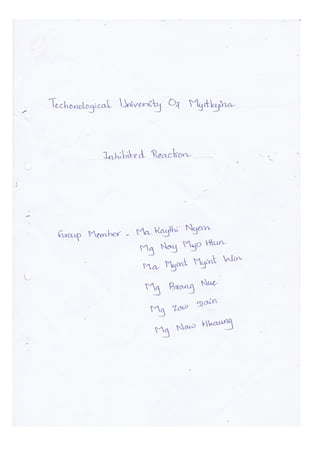 Techonological University Of Myitkyina
Inhibited Reaction
Group Member - Ma Kaythi Nyein
Mg Nay Myo Htun
Ma Myint Myint Win
Mg Brang Nue
Mg Zaw Dain
Mg Naw Hkaung